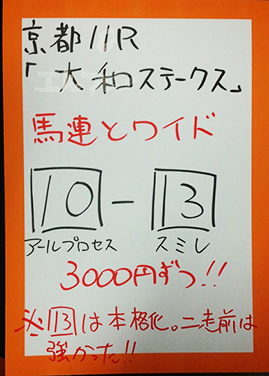 京都11R
「大和ステークス」
馬連とワイド
10-13
アールプロセス スミレ
3000円ずつ!!
※13は本格化。二走前は
強かった!!